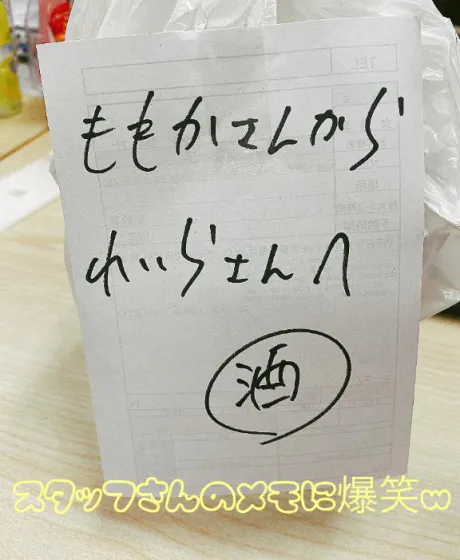 ももかさんから
れいらさんへ
酒
スタッフさんのメモに爆笑w
TEL